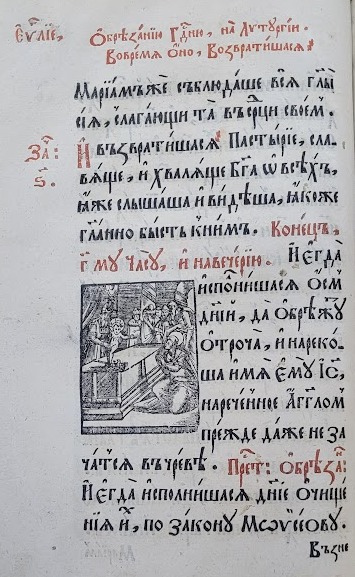 Єѵⷢ҇лїе,
Ѡбрѣзанїю Гⷭ҇дню, на Лутургеи.
Вовремѧ Ѻно, Возвратишасѧ
Марїамъже съблюдаше всѧ глы
сїѧ, слагающи та въ срⷣци своем.
За:
И възвратишасѧ Пастырїе, сла
ѕ.
вѧще, и хвалѧще Бг҃а ѡ всѣхъ,
ꙗже слышаша и видѣша, ꙗкоже
гл҃анно бысть к ним. Конецъ,
г҃ му часу, и навечерїю. И Єгда
исполнишасѧ Ѻсм
днїй, да Ѻбрѣжут
Ѻтроча, и нареко-
ша имѧ Ємꙋ І҃с,
нареченное Агг҃лом
прежде даже не за
чатсѧ въ чревѣ. Прⷣет: Ѻбрѣза:
И Єгда исполнишасѧ дн҃їе очище
нїѧ и҃, по закону Мѡѵсеову.
Възне